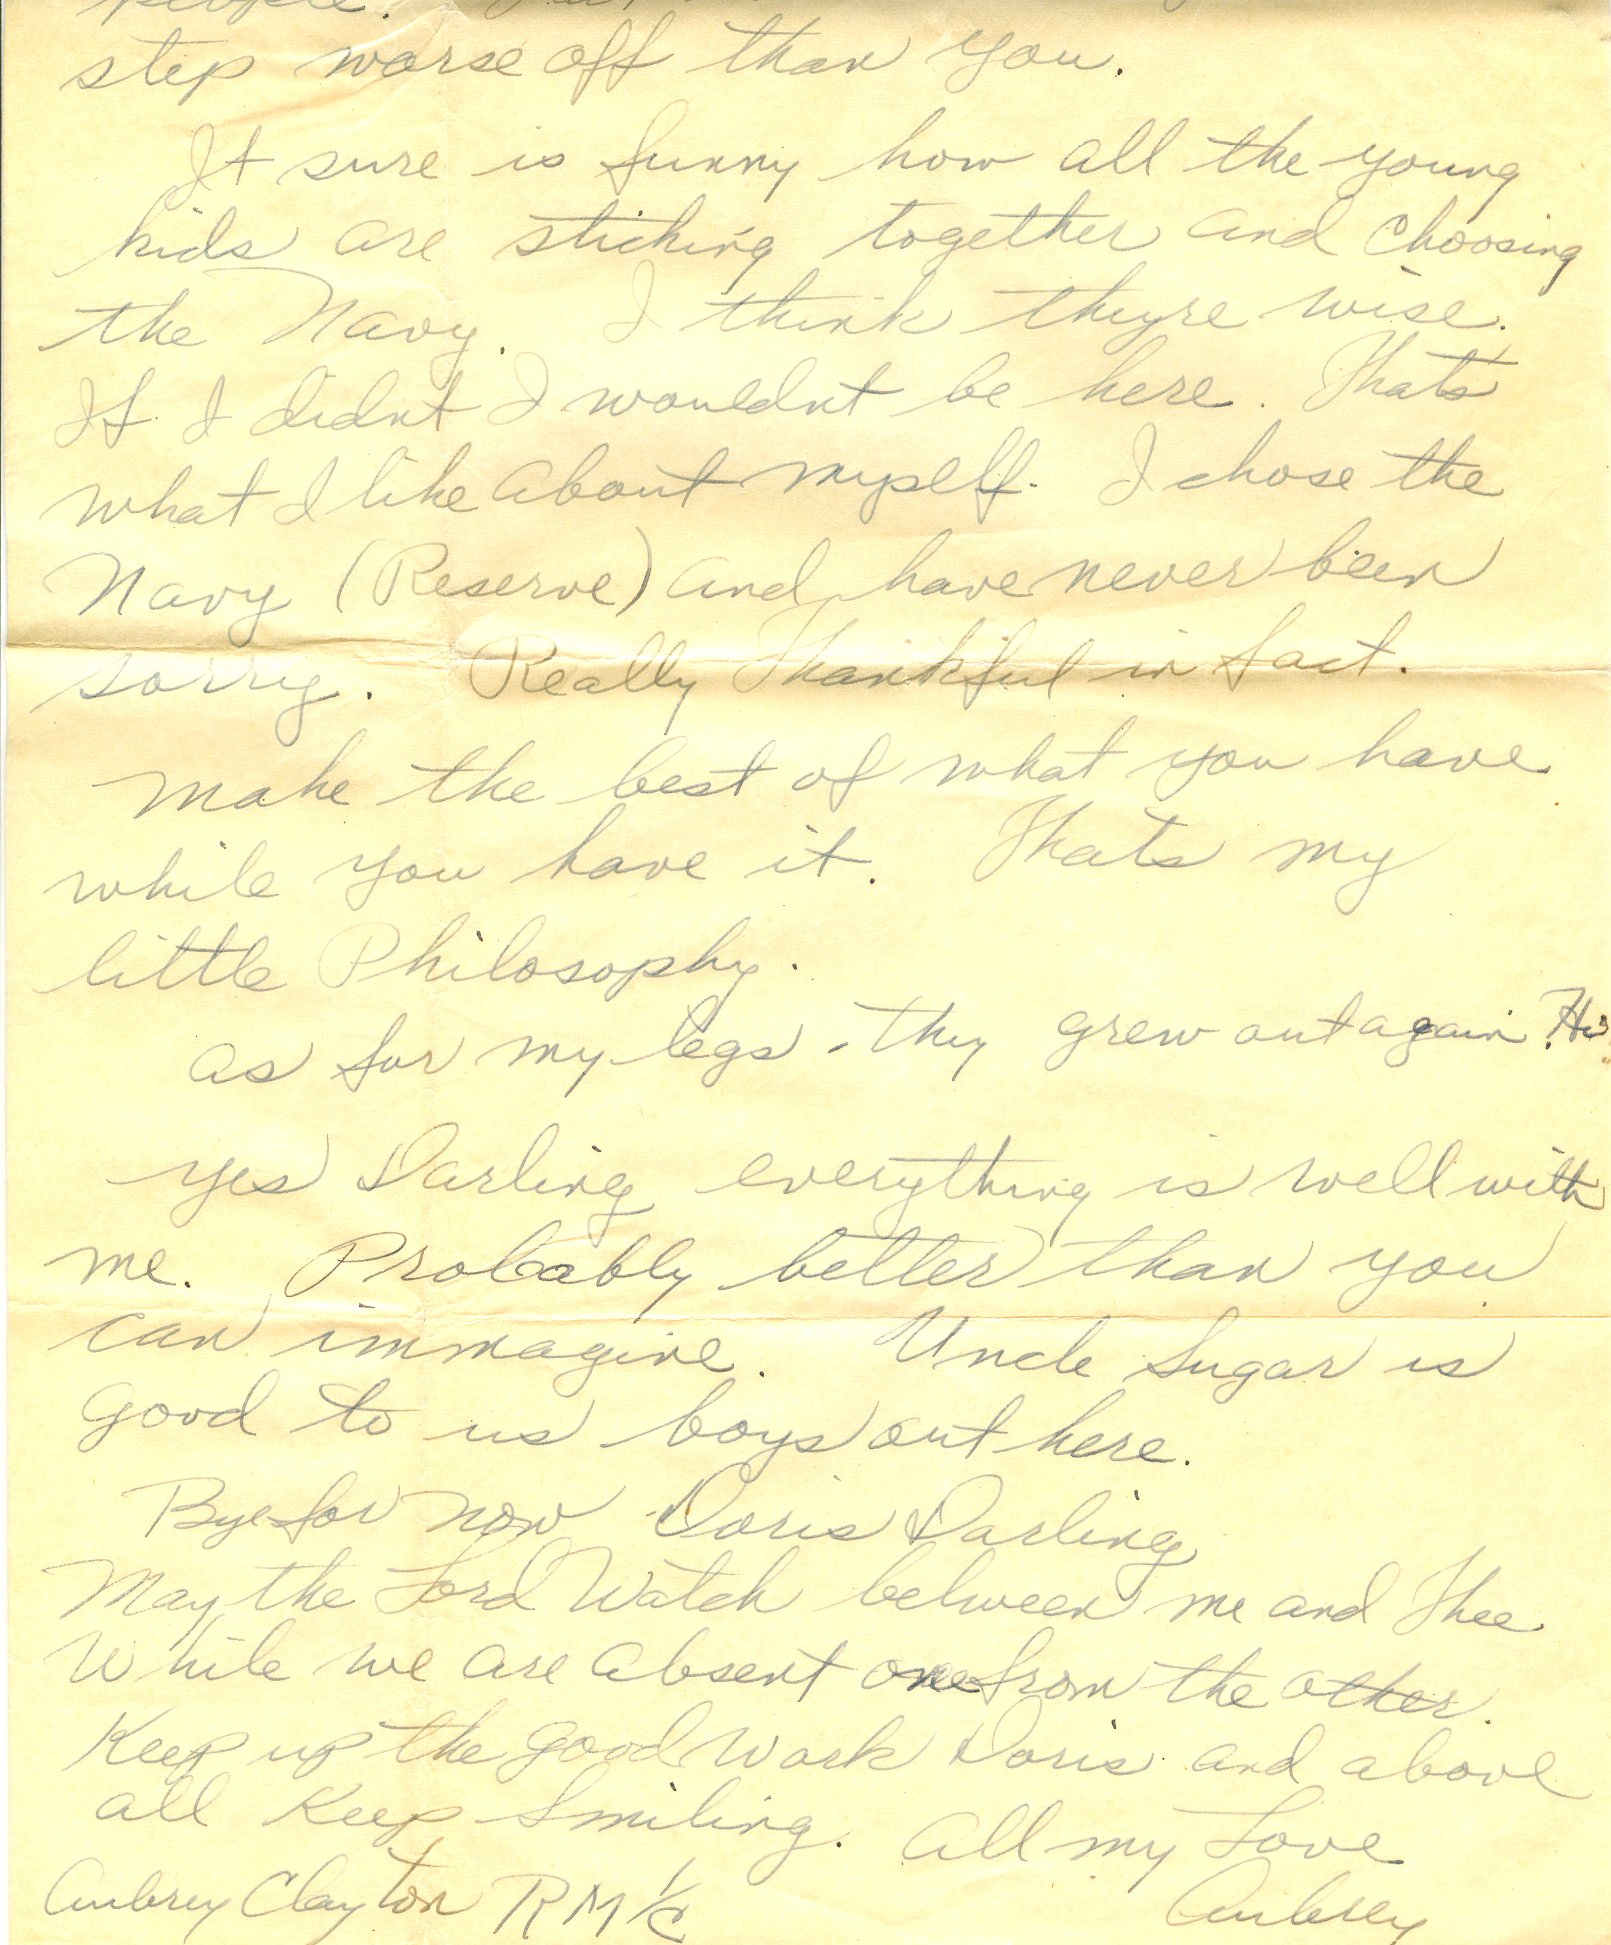 people.
step worse off than you.
It sure is funny how all the young
kids are sticking together and choosing
the Navy. I think theyre wise.
If I didnt I wouldnt be here. Thats
what I like about myself. I chose the
Navy (Reserve) and have never been
sorry. Really Thankful in fact.
Make the best of what you have
while you have it. Thats my
little Philosophy.
As for my legs - they grew out again. Ha
Yes Darling everything is well with
me. Probably better than you
can immagine. Uncle Sugar is
good to us boys out here.
Bye for now Doris Darling
May the Lord Watch between me and Thee
While we are absent one from the other.
Keep up the good work Doris and above
all Keep Smiling. All my Love
Aubrey Clayton RM 1/C Aubrey